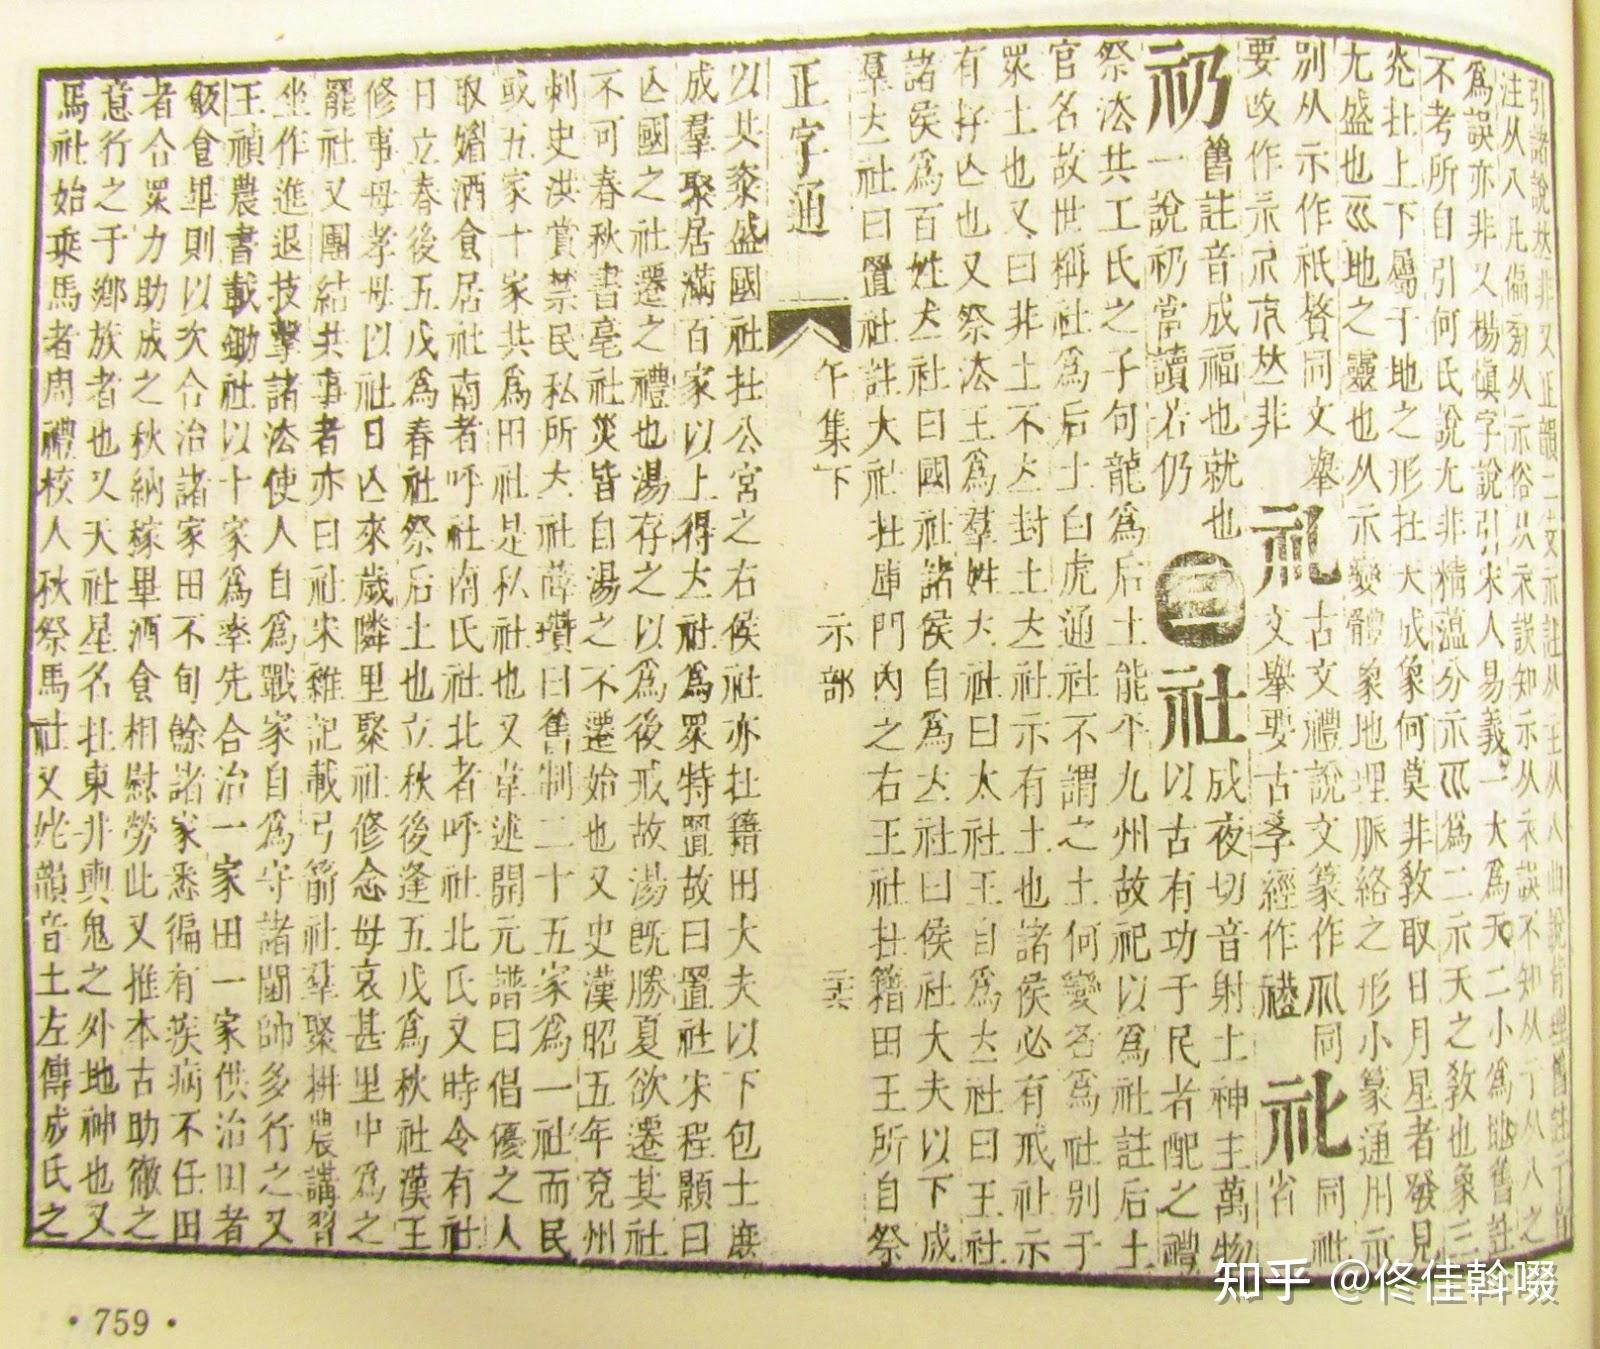 引諸說𠀤非又正韻二支示註从一主从八曲說肯理舊註示
注从八凡偏旁从示俗从衣誤知示从衣誤不知从丁从八之
爲誤亦非又楊慎字說引宋人易義一大爲天二小爲地舊註
不考所自引何氏說尢非精薀分示巛爲二示天之敎也象三
光扗上下屬于地之形扗大成象何莫非敎取日月星者發見
尢盛也巛地之靈也从示變體象地理脈絡之形小篆通用示
別从示作祇贅同文舉 古文禮說文篆作爪同 同祉
要攺作示𠀤非 礼 文舉要古孝經作禮 礼 省
礽 舊註音成福也就也 ㊂ 社 成夜切音射土神主萬物
一說礽當讀若仍 以古有功于民者配之禮
祭法共工氏之子句龍爲后土能平九州故祀以爲社註后土
官名故世稱社爲后土白虎通社不謂之土何變名爲社別于
眾土也又曰非土不立封土立社示有土也諸侯必有戒社示
有存亾也又祭法王爲羣姓立社曰太社王自爲立社曰王社
諸侯爲百姓立社曰國社諸侯自爲立社曰侯社大夫以下成
羣立社曰置社註大社扗庫門內之右王社扗籍田王所自祭
正字通 午集下 示部 二六
以共粢盛國社扗公宮之右侯社亦扗籍田大夫以下包士庶
成羣聚居滿百家以上得立社爲眾特置故曰置社宋程顥曰
亾國之社遷之禮也湯存之以爲後戒故湯旣勝夏欲遷其社
不可春秋書亳社災皆自湯之不遷始也又史漢昭五年兗州
刺史洪賞禁民私所立社薛瓚曰舊制二十五家爲一社而民
或五家十家共爲田社是私社也又韋述開元譜曰倡優之人
取媚酒食居社南者呼社南氏社北者呼社北氏又時令有社
日立春後五戊爲春社祭后土也立秋後逢五戊爲秋社漢王
修事母孝母以社日亾來歲隣里聚社修念母哀甚里中爲之
罷社又團結共事者亦曰社宋雜記載弓箭社羣聚耕農講習
坐作進退技擊諸法使人自爲戰家自爲守諸閫帥多行之又
王禎農書載鋤社以十家爲率先合治一家田一家供治田者
飯食畢則以次合治諸家田不旬餘諸家悉徧有疾病不任田
者合眾力助成之秋納稼畢酒食相慰勞此又推本古助徹之
意行之于鄉族者也又天社星名扗東井輿鬼之外地神也又
馬社始乘馬者周禮校人秋祭馬社又姥韻音土左傳成氏之
759
知乎 @佟佳斡啜